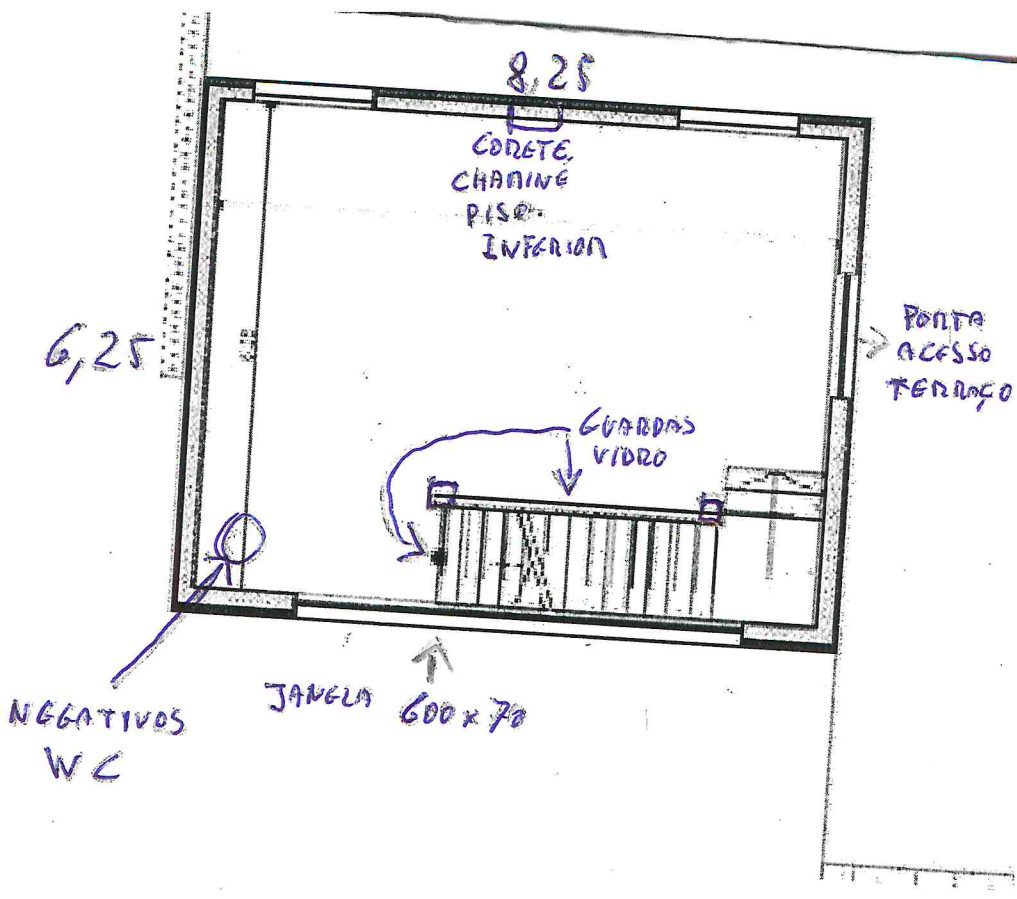 8,25
CORETE
CHAMINE
PISO
INFERIOR
6,25
PORTA
ACESSO
TERRAÇO
GUARDAS
VIDRO
NEGATIVOS
WC
JANELA 600x70